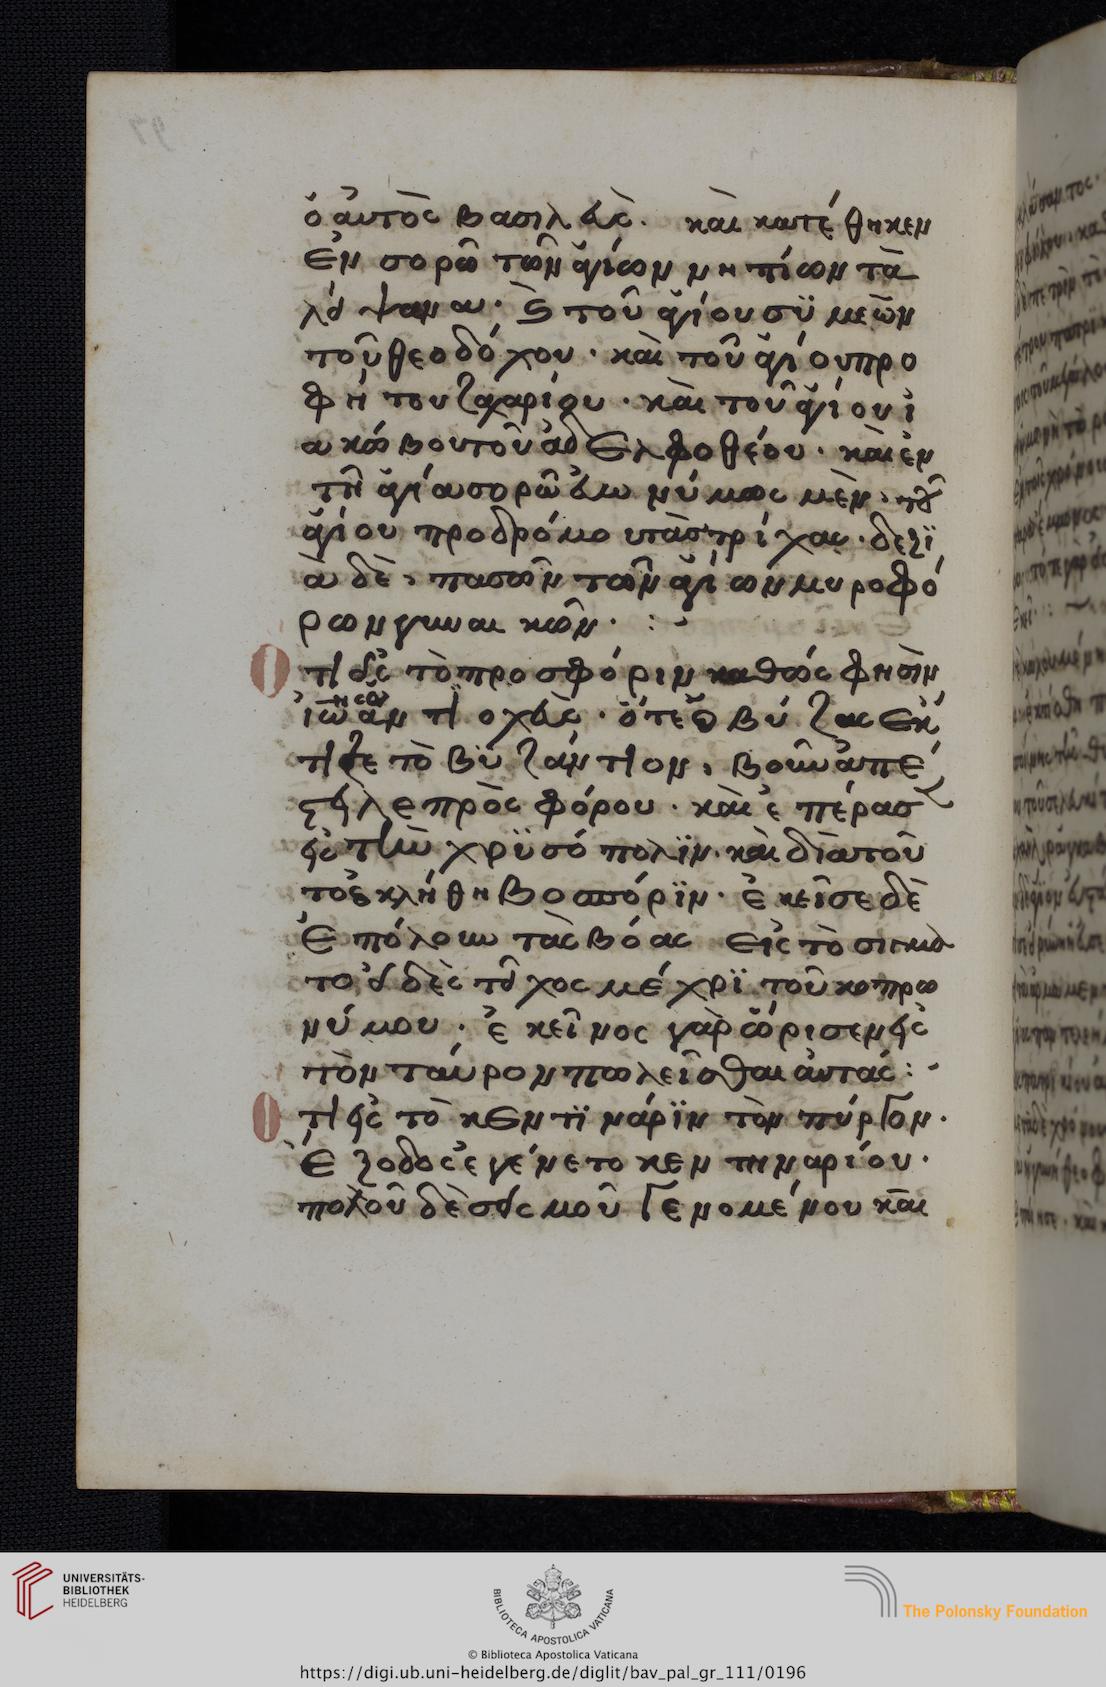 ὁ αὐτὸς βασιλεὺς. καὶ κατέθηκεν
ἐν σορῶ τῶν ἁγίων νηπίων τὰ
λείψανα. ϛ τοῦ ἁγίου σϋμεῶν
τοῦ θεοδόχου. καὶ τοῦ ἁγίου προ
φήτου ζαχαρίου. καὶ τοῦ ἁγίου ἰ
ακώβου τοῦ ἀδελφοθέου. καὶ ἐν
τῆ ἁγία σορῶ εὐωνύμως μὲν. τοῦ
ἁγίου προδρόμου τὰς τρίχας. δεξϊ
ὰ δὲ, πασῶν τῶν ἁγίων μυροφό
ρων γυναικῶν. :
Ὅτι εἰς τὸ προσφόριν καθώς φησὶν
ἰωάννης ὁ ἀντιοχεὺς. ὅτε ὁ βύζας ἐκ
τιζε τὸ βϋζάντιον, βοῦν ἀπέ
στειλε πρὸς φόρου. καὶ ἐπέρασεν
εἰς τὴν χρϋσόπολϊν. καὶ διὰ τοῦ
το ἐκλήθη βοσπόρϊν. ἐκεῖσε δὲ
ἐπόλουν τὰς βόας εἰς τὸ σιγμα
τοειδὲς τεῖχος μέχρϊ τοῦ κοπρω
νύμου. ἐκεῖνος γὰρ ὥρισεν εἰς
τὸν ταύρον πωλεῖσθαι αὐτάς :
Ὅτι εἰς τὸ κεντϊνάρϊν τὸν πύργον.
ἔξοδος ἐγένετο κεντηναρίου.
πολλοῦ δὲ σεισμοῦ γενομένου καὶ
97
UNIVERSITÄTS-
BIBLIOTHEK
HEIDELBERG
BIBLIOTECA APOSTOLICA VATICANA
The Polonsky Foundation
© Biblioteca Apostolica Vaticana
https://digi.ub.uni-heidelberg.de/diglit/bav_pal_gr_111/0196